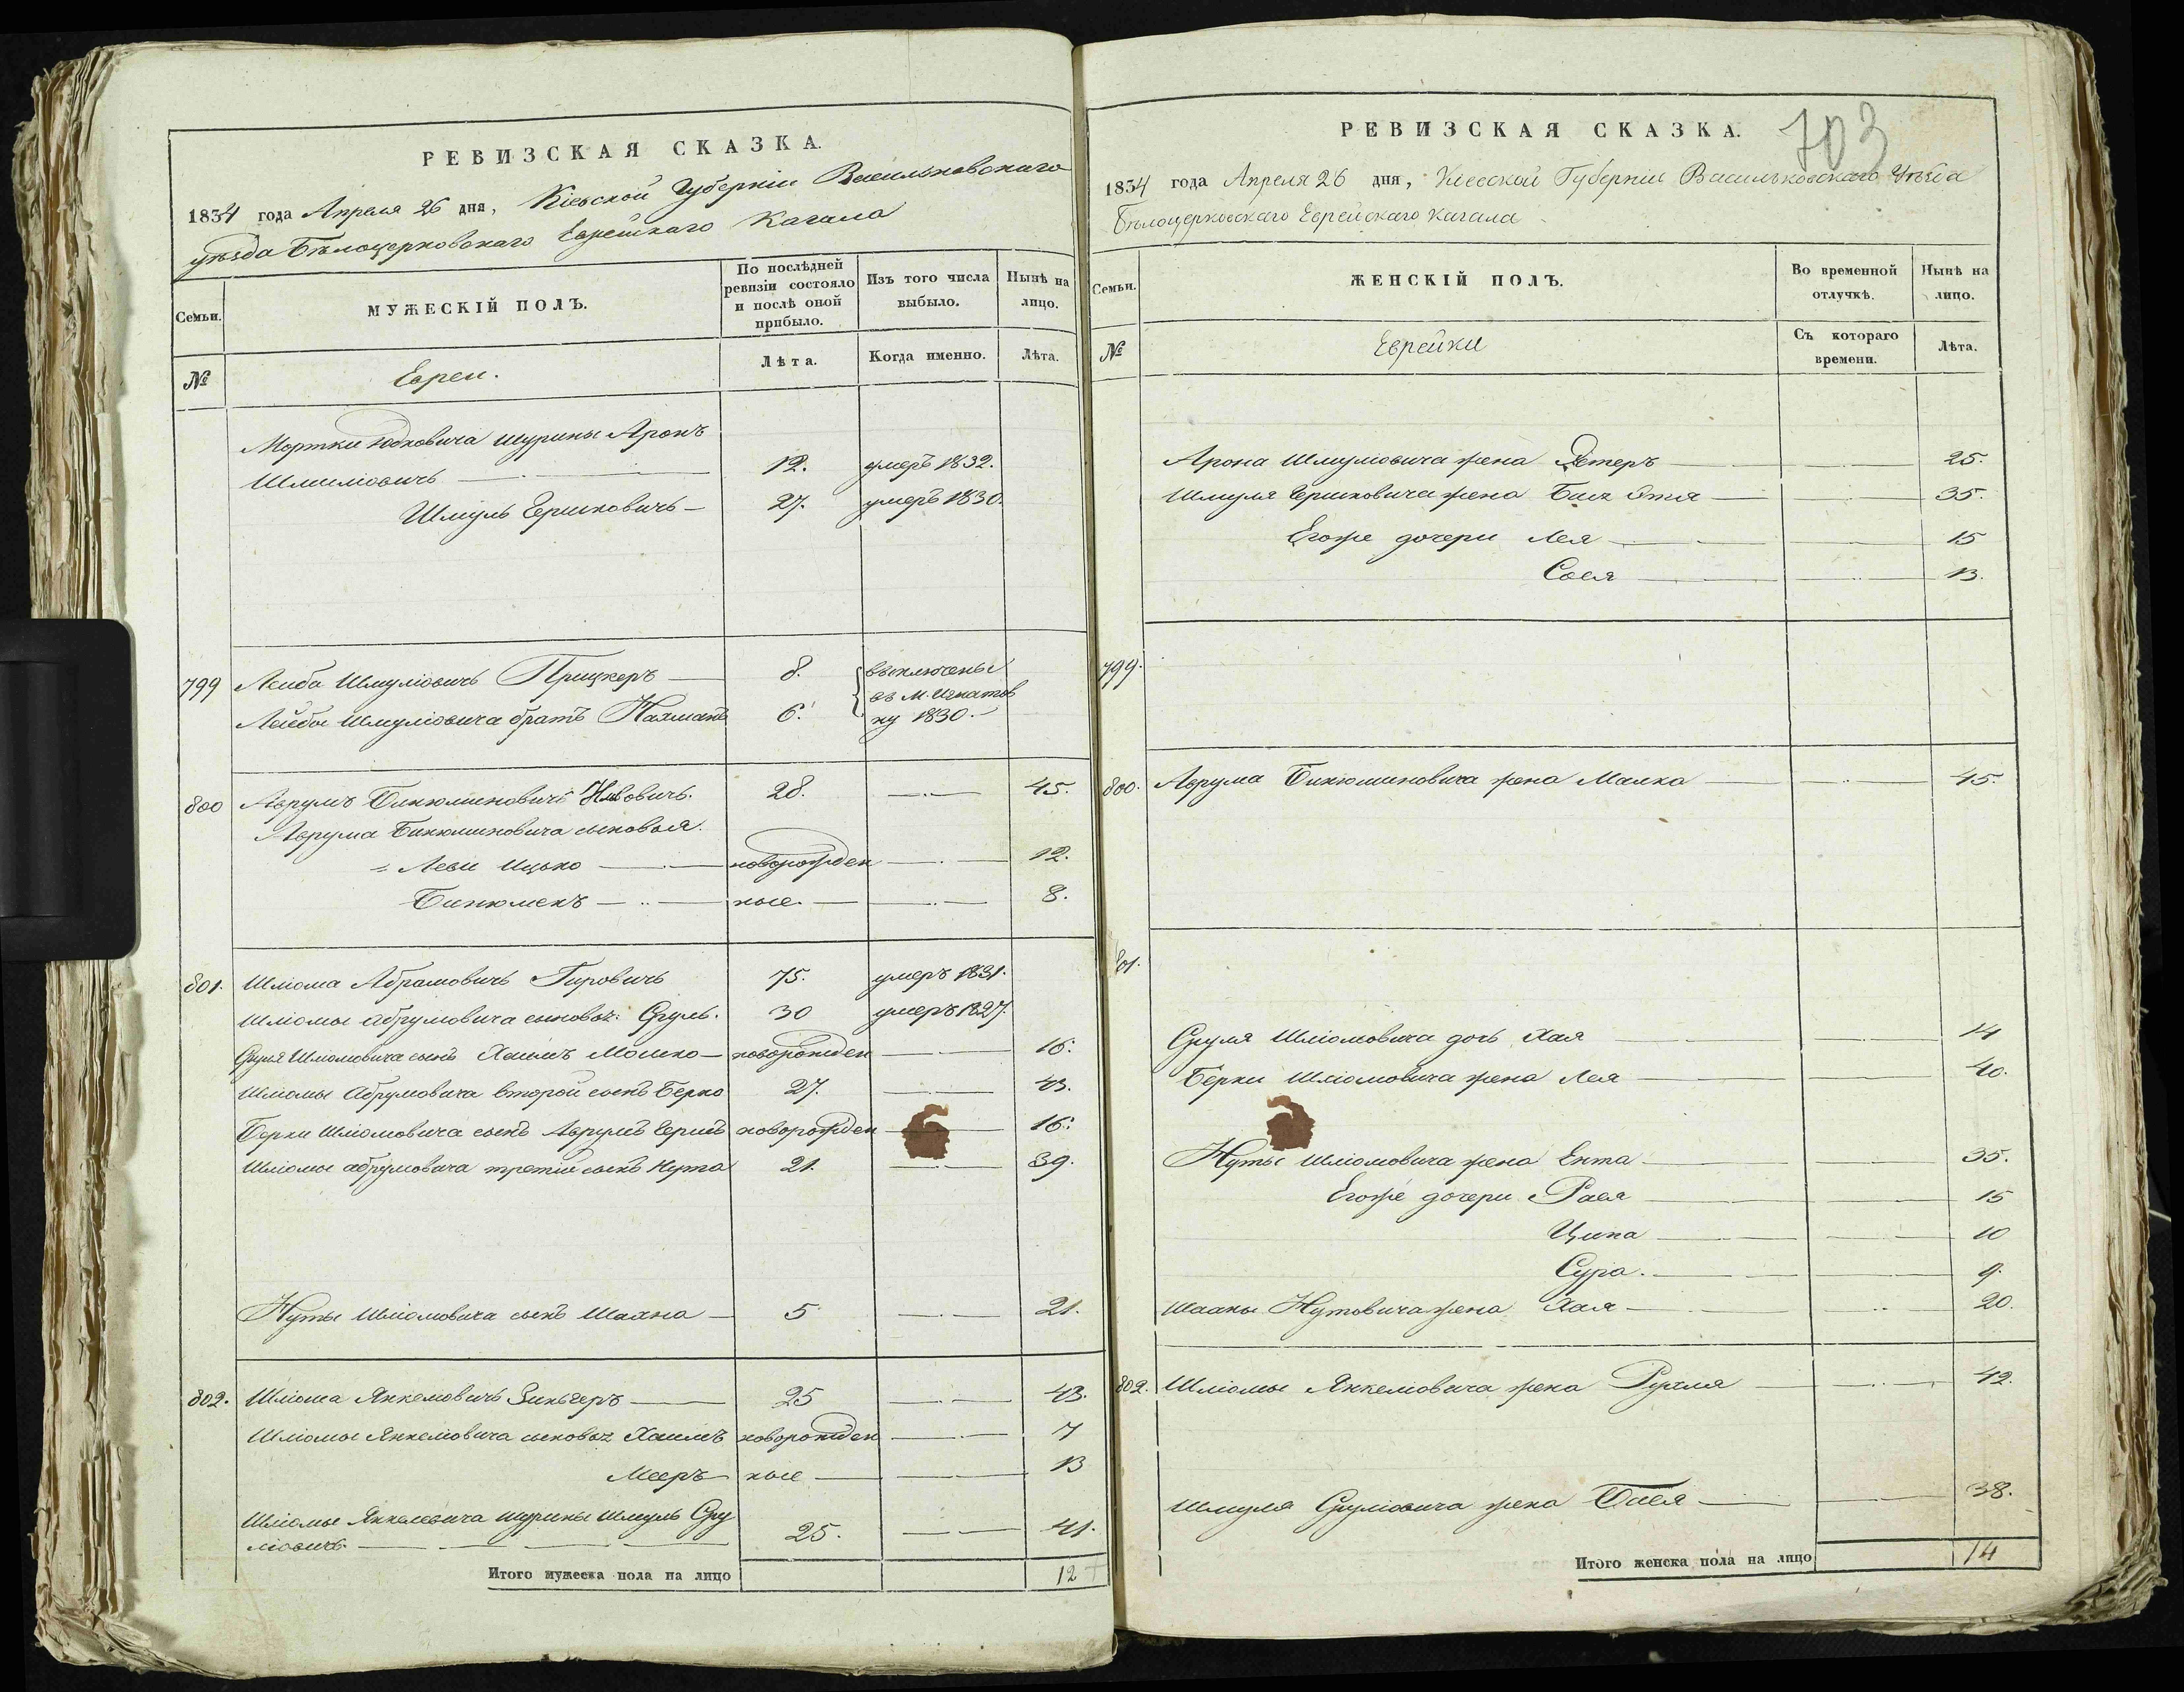 РЕВИЗСКАЯ СКАЗКА.
1834 года Апреля 26 дня, Кіевской Губерніи Васильковскаго
уѣзда Бѣлоцерковскаго Еврейскаго Кагала
Семьи.
МУЖЕСКІЙ ПОЛЪ.
По послѣдней
ревизіи состояло
и послѣ оной
прибыло.
Изъ того числа
выбыло.
Нынѣ на
лицо.
№
Евреи.
Лѣта.
Когда именно.
Лѣта.
Мортки Юдковича шурины Аронъ
Шмуліовичъ 12. умеръ 1832.
Шмуль Гершковичъ 27. умеръ 1830.
799 Лейба Шмуліовичъ Прицкеръ 8. выключены
въ М. Игнатов
Лейбы Шмуліовича братъ Нахманъ 6. ку 1830.
800 Аврумъ Бинюминовичъ 28. 45.
Аврума Бинюминовича сыновья.
Леви Ицько новорожден 12.
Бинюменъ ные. 8.
801. Шліома Абрамовичъ Гировичъ 75. умеръ 1831.
Шліомы Абрумовича сыновья: Сруль. 30 умеръ 1827.
Сруля Шліомовича сынъ Хаимъ Мошко новорожден 16.
Шліомы Абрумовича второй сынъ Берко 27. 43.
Берки Шліомовича сынъ Аврумъ Гершъ новорожден 16.
Шліомы Абрумовича третій сынъ Нута 21. 39.
Нуты Шліомовича сынъ Шахна 5 21.
802. Шліома Янкеліовичъ Зингеръ 25 43.
Шліомы Янкеліовича сыновья Хаимъ новорожден 7
Мееръ ные 13
Шліомы Янкелевича шурины Шмуль Сру
ліовичъ 25. 41.
Итого мужеска пола на лицо 12
РЕВИЗСКАЯ СКАЗКА.
703
1834 года Апреля 26 дня, Кіевской Губерніи Васильковскаго Уѣзда
Бѣлоцерковскаго Еврейскаго кагала
Семьи.
ЖЕНСКІЙ ПОЛЪ.
Во временной
отлучкѣ.
Нынѣ на
лицо.
№
Еврейки
Съ котораго
времени.
Лѣта.
Арона Шмуліовича жена Эстеръ 25.
Шмуля Гершковича жена Этя 35.
Егоже дочери Лея 15
Сося 13.
799.
800. Аврума Бинюминовича жена Малка 45.
801.
Сруля Шліомовича дочь Хая 14
Берки Шліомовича жена Лея 40.
Нуты Шліомовича жена Ента 35.
Егоже дочери Рася 15
Ципа 10
Сура. 9.
Шахны Нутовича жена Хая 20.
802. Шліомы Янкеліовича жена Рухля 42.
Шмуля Сруліовича жена Бася 38.
Итого женска пола на лицо 14